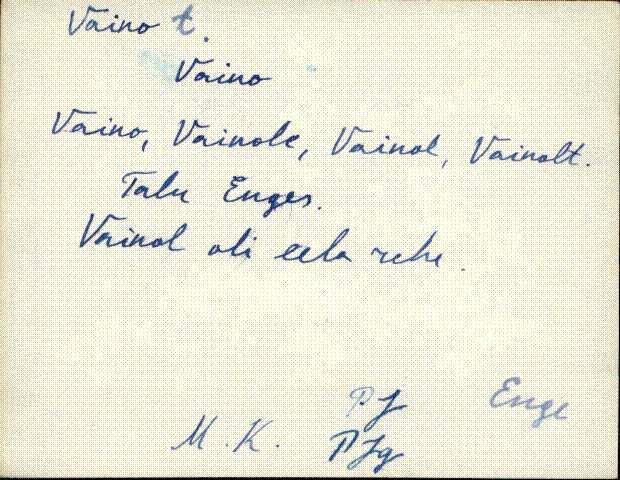 Vaino t.
Vaino
Vaino, Vainole, Vainol, Vainolt.
Talu Enges.
Vainol oli eela rehe.
PJ Enge
M. K. PJg